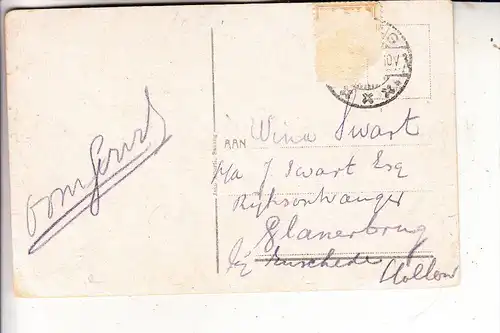 oom Gerard
AAN Wina Swart
p/a J. Swart Esq
Rijksontvanger
Glanerbrug
bij Enschede
Holland